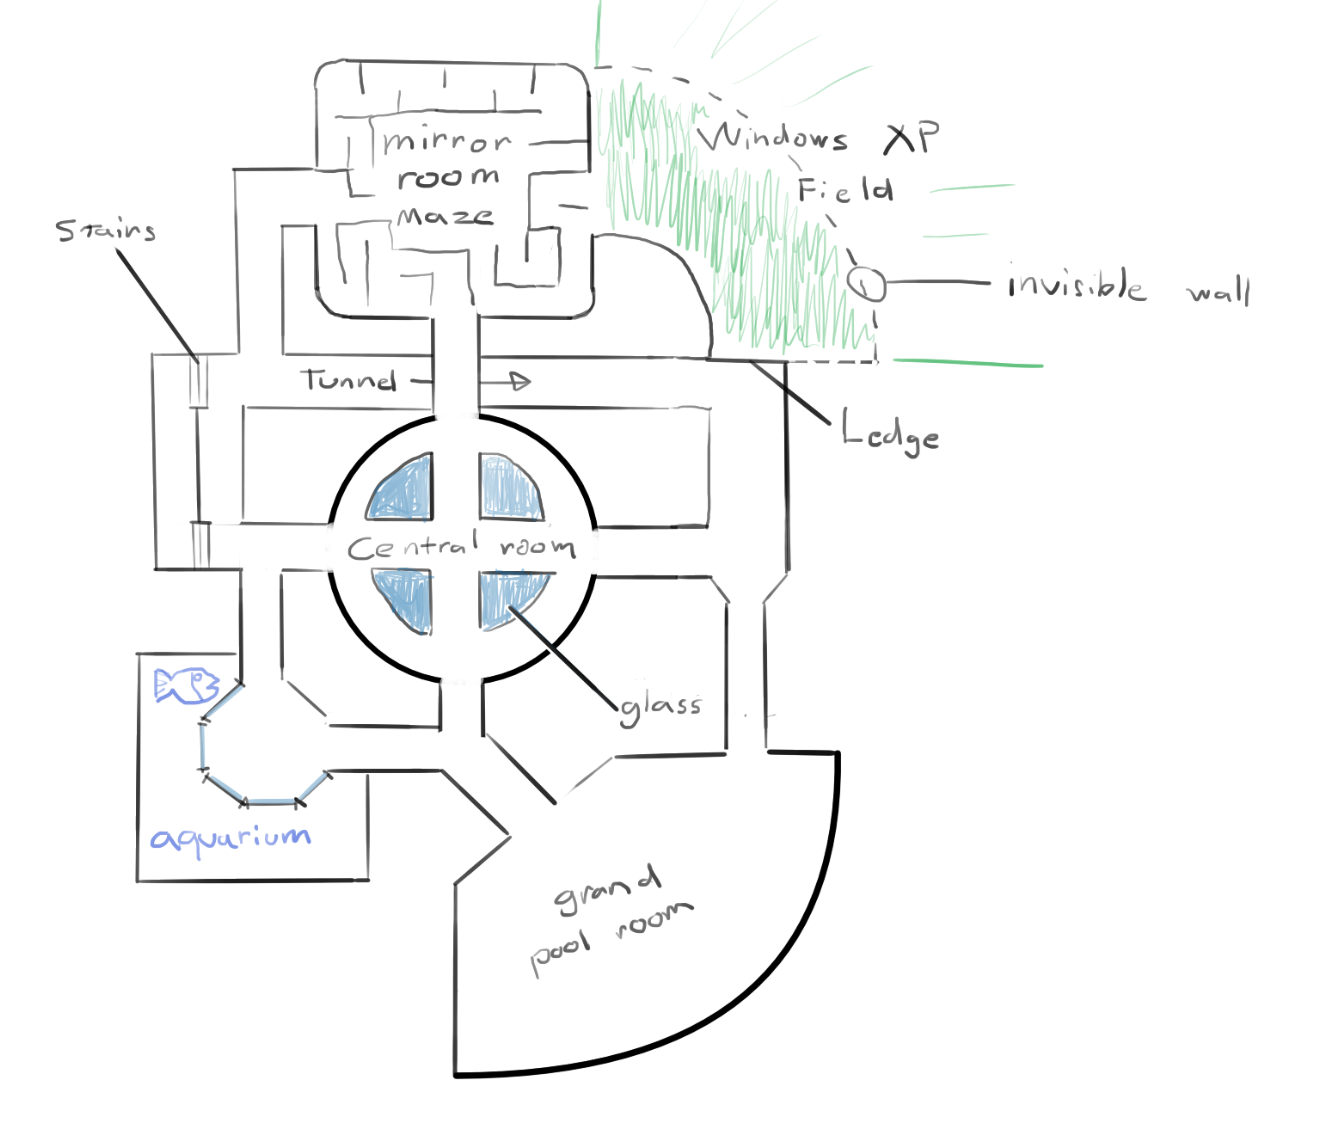 mirror
room
Maze
Windows XP
Field
Stairs
invisible wall
Tunnel
Ledge
Central room
glass
aquarium
grand
pool room